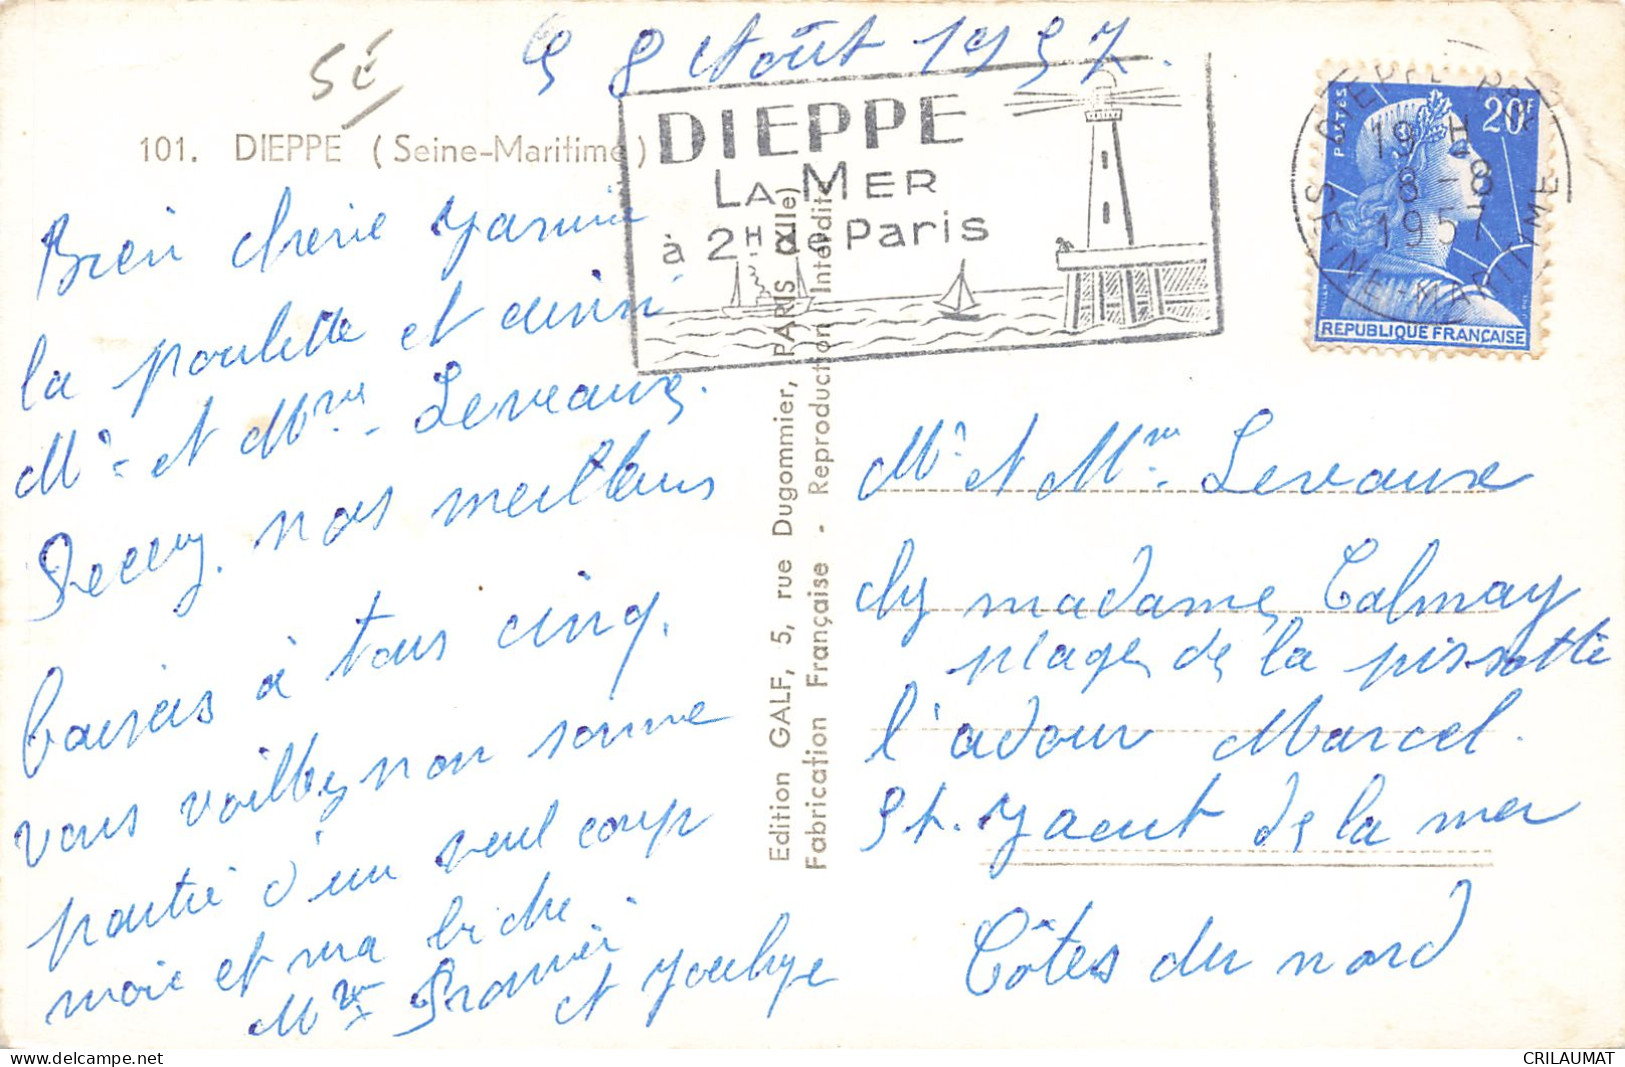 5É
8 Août 1957.
101. DIEPPE (Seine-Maritime)
DIEPPE
LA MER
à 2H de Paris
20F
POSTES
REPUBLIQUE FRANÇAISE
DIEPPE
19 H
8 - 8
1957
SEINE-MARITIME
Bien cherie
la poulette et
Mr et Mme Leveaux.
Recevez nos meilleurs
baisers à tous cinq.
vous voillez non somme
partie d'un seul coup
moie et ma biche
Mme
et
Edition GALF, 5, rue Dugommier, PARIS (XIIe)
Fabrication Française - Reproduction Interdite
Mr et Mme Leveaux
chez madame Calmay
plage de la pissotte
l'adour Marcel.
St. Jacut de la mer
Côtes du nord
CRILAUMAT